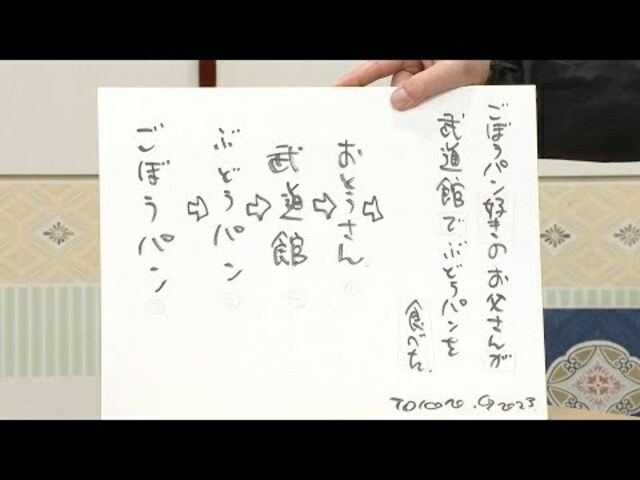 ごぼうパン好きのお父さんが
武道館でぶどうパンを
食べた.
おとうさん
武道館
ぶどうパン
ごぼうパン